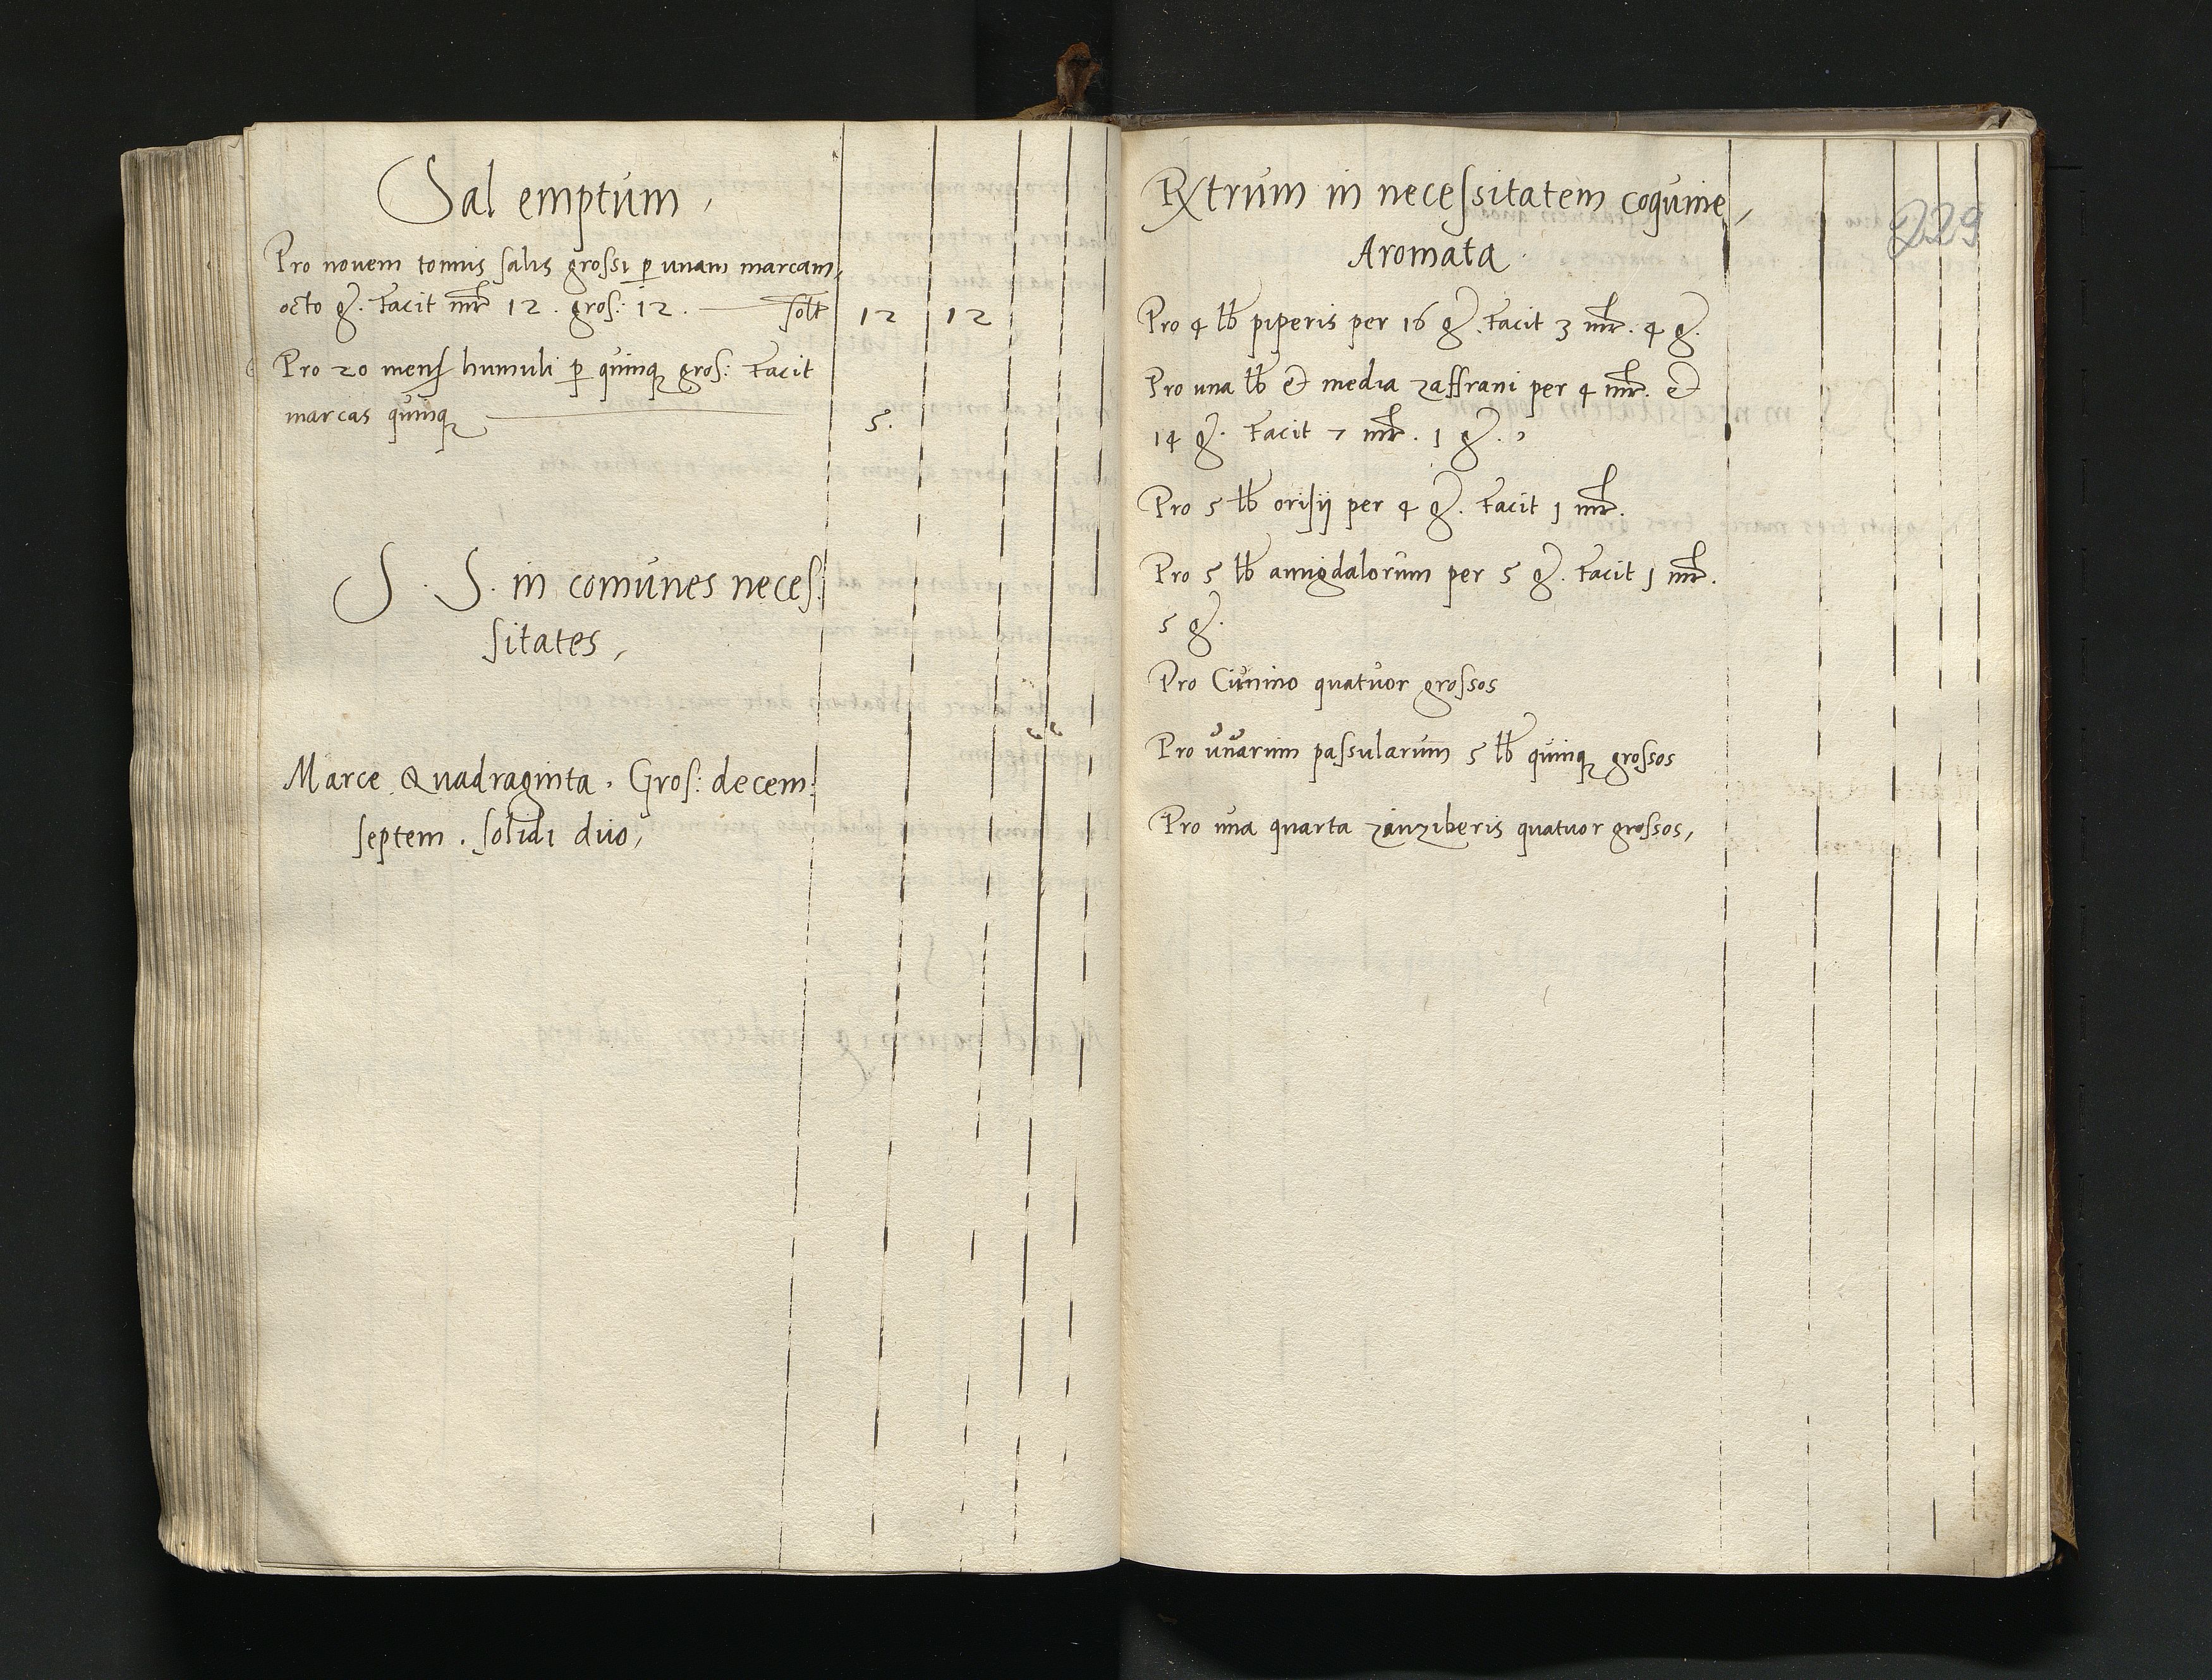 Sal emptum,
Pro novem tonnis salis grossi p unam marcam,
octo g. Facit mr 12. gros: 12. solt 12 12
Pro 20 mens humuli p quinq gros: Facit
marcas quinq 5.
S. S. in comunes neces
sitates,
Marce Quadraginta. Gros: decem:
septem. solidi duo,
229
in necessitatem coquine,
Aromata.
Pro 4 lb piperis per 16 g. Facit 3 mr. 4 g.
Pro una lb et media zaffrani per 4 mr. et
14 g. Facit 7 mr. 1 g.,
Pro 5 lb orisij per 4 g. Facit 1 mr.
Pro 5 lb amigdalorum per 5 g. Facit 1 mr.
5 g.
Pro Cimino quatuor grossos
Pro uvarum passularum 5 lb quinq grossos
Pro una quarta zinziberis quatuor grossos,